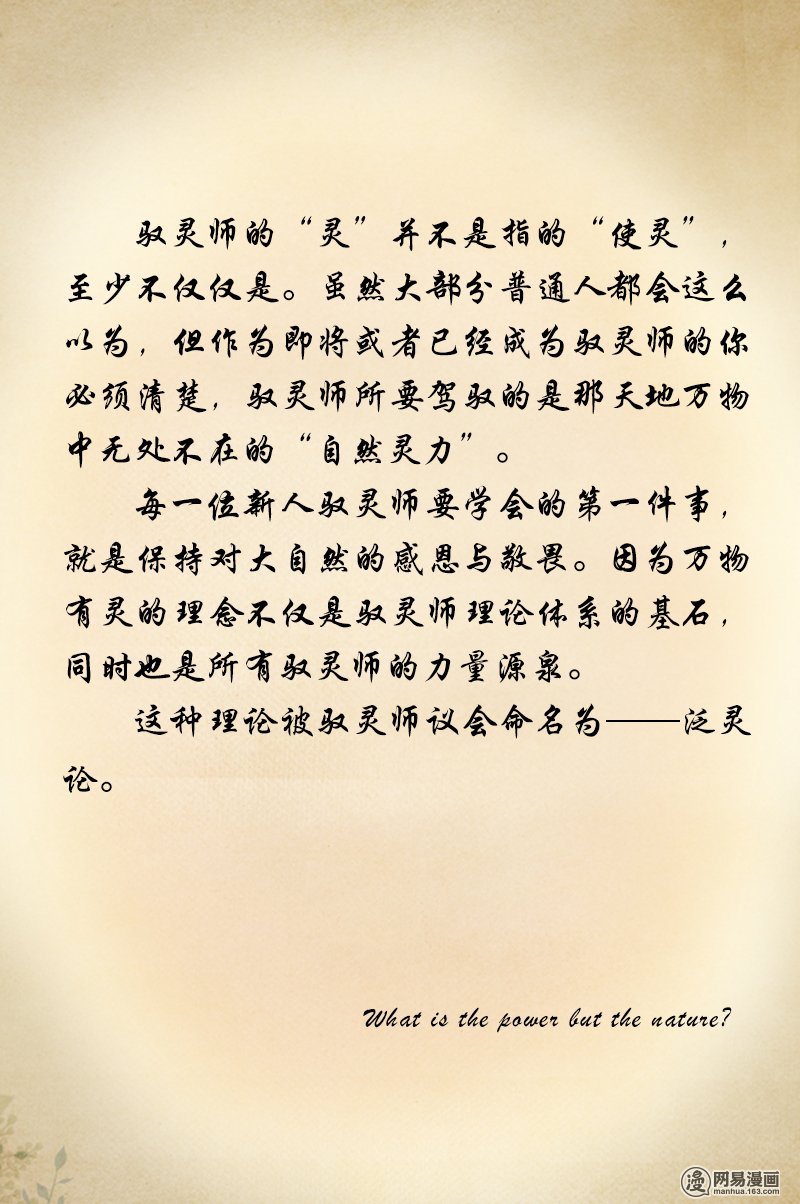 驭灵师的“灵”并不是指的“使灵”，
至少不仅仅是。虽然大部分普通人都会这么
以为，但作为即将或者已经成为驭灵师的你
必须清楚，驭灵师所要驾驭的是那天地万物
中无处不在的“自然灵力”。
每一位新人驭灵师要学会的第一件事，
就是保持对大自然的感恩与敬畏。因为万物
有灵的理念不仅是驭灵师理论体系的基石，
同时也是所有驭灵师的力量源泉。
这种理论被驭灵师议会命名为——泛灵
论。
What is the power but the nature?
漫 网易漫画
manhua.163.com